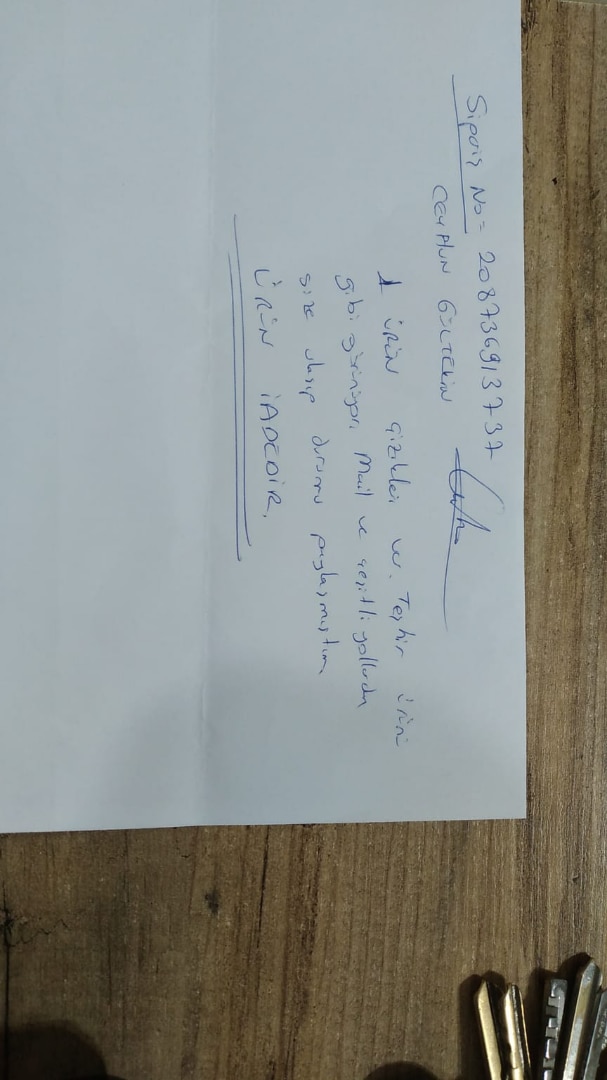 Sipariş No = 20873693737
CEYHUN GÜLTEKİN
1 ürün çizikler ve. Teşhir ürünü
gibi görünüyor, Mail ve çeşitli yollardan
size ulaşıp durumu paylaşmıştım
ÜRÜN İADEDİR.